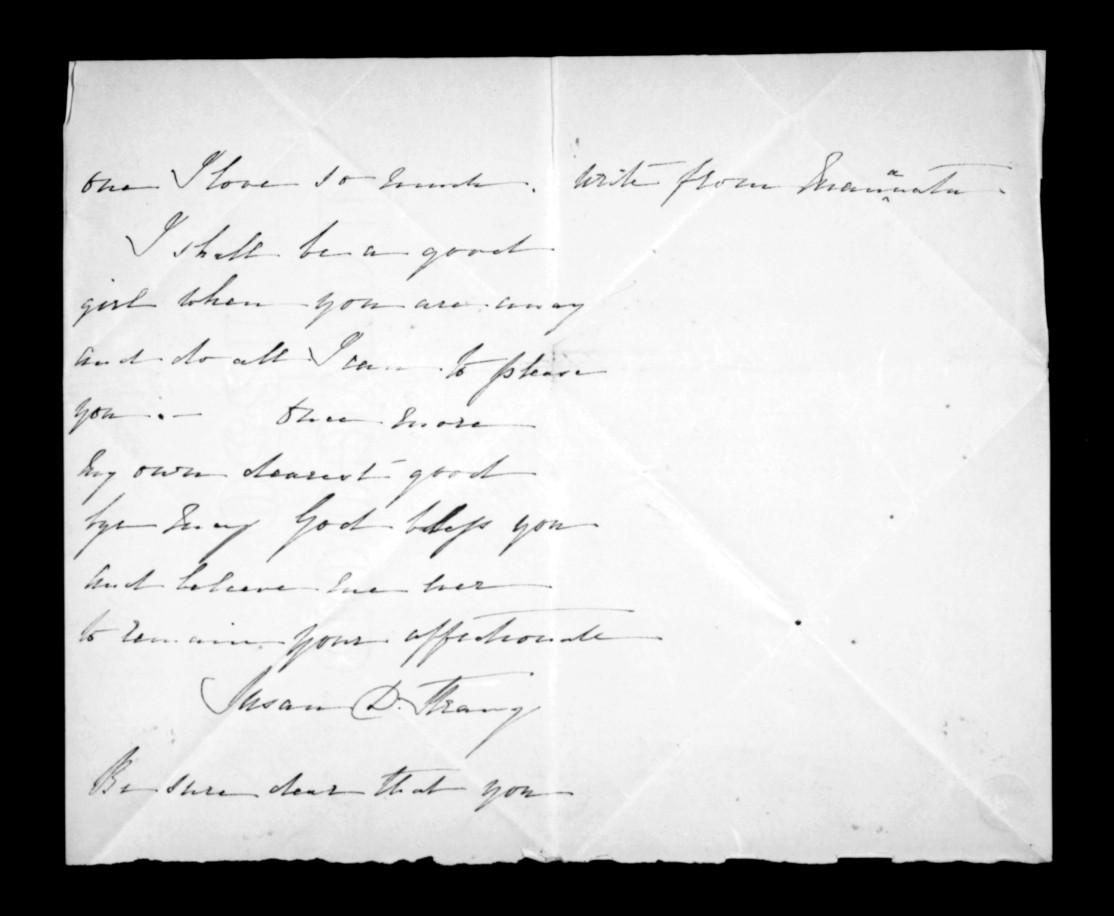 one I love so much.
I shall be a good
girl when you are away
and do all I can to please
you. — Once more
my own dearest good
bye may God bless you
and believe me ever
to remain your affectionate
Susan D. Strang
Be sure dear that you
write from Manawatu.